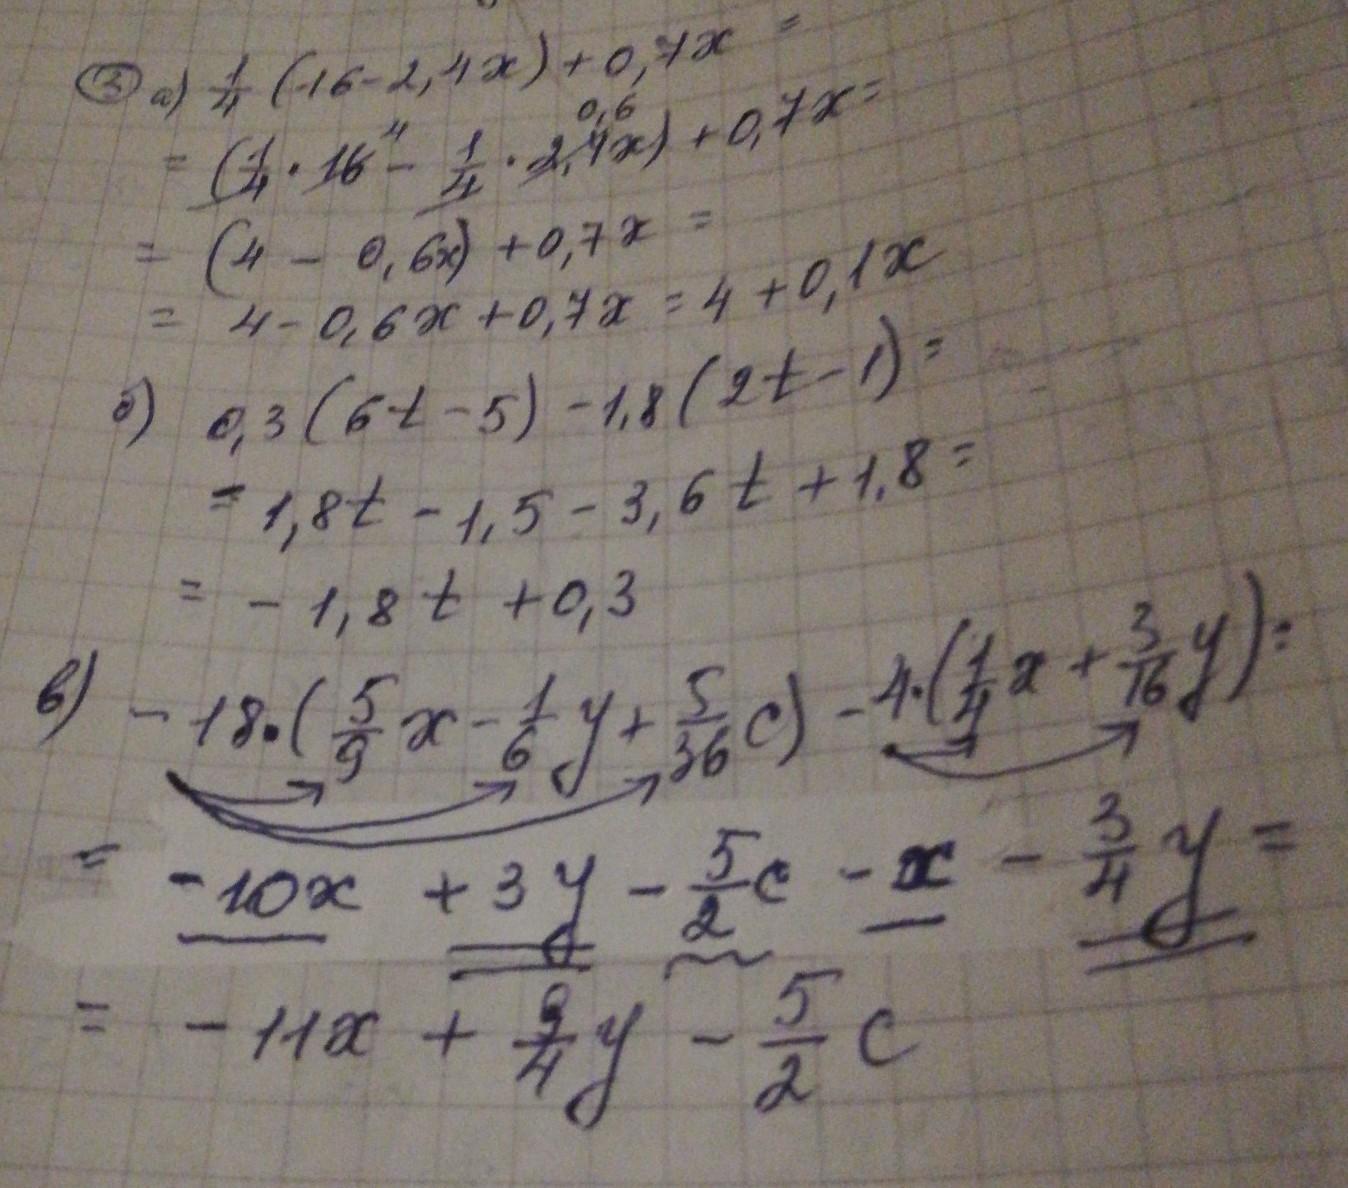 ③ а) 1/4 (-16-2,4x)+0,7x =
= (1/4 · 16 4 - 1/4 · 2,4x 0,6) + 0,7x =
= (4 - 0,6x) + 0,7x =
= 4 - 0,6x + 0,7x = 4 + 0,1x
б) 0,3(6t-5) - 1,8(2t-1) =
= 1,8t - 1,5 - 3,6t + 1,8 =
= - 1,8t + 0,3
в) - 18·(5/9 x - 1/6 y + 5/36 c) - 4·(1/4 x + 3/16 y) =
= -10x + 3y - 5/2 c - x - 3/4 y =
= - 11x + 9/4 y - 5/2 c